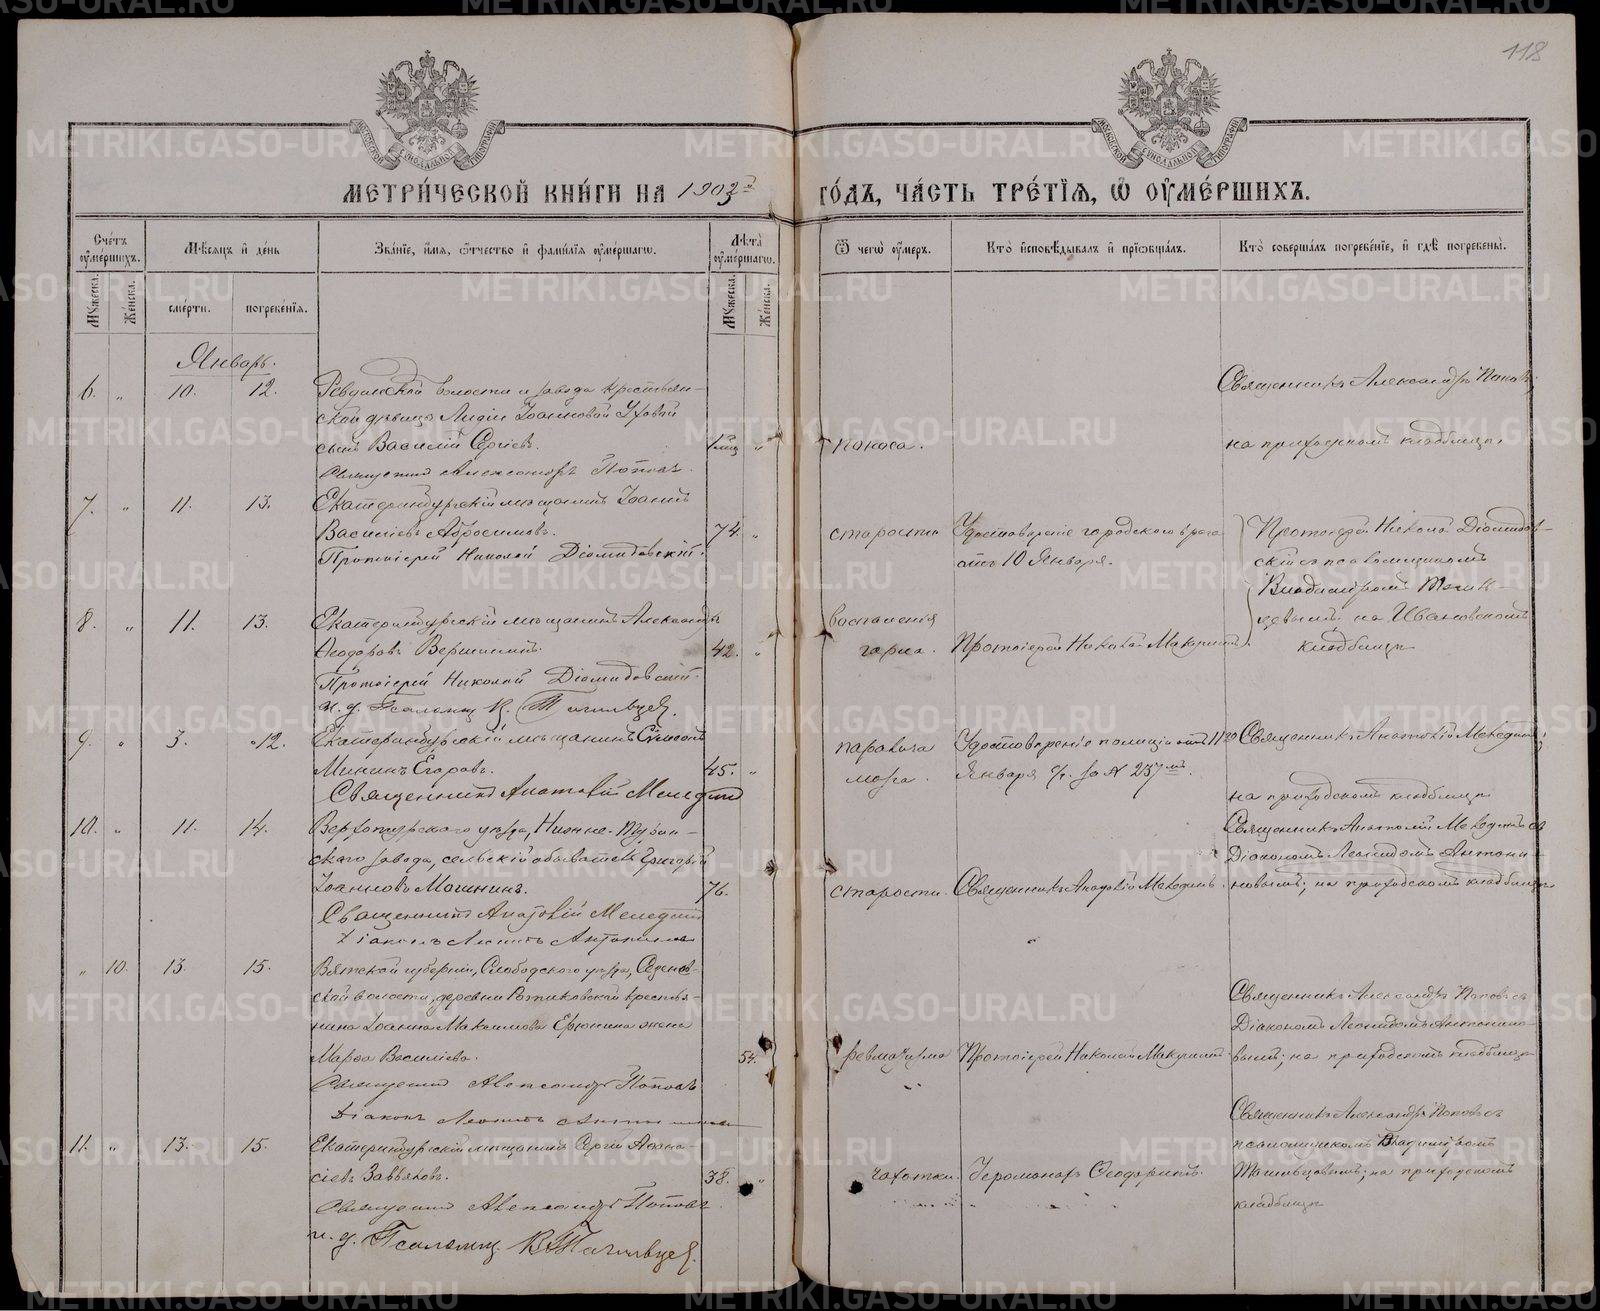 118
МЕТРИ́ЧЕСКОЙ КНИ́ГИ НА 1903й ГО́ДЪ, ЧА́СТЬ ТРЕ́ТІѦ, Ѡ ОУМЕ́РШИХЪ.
Сче́тъ оумершихъ.
Мѣсѧцъ и день
Зва́нїе, и́мѧ, ѻтчество и фами́лїѧ оуме́ршагѡ.
Лѣта̀ оуме́ршагѡ.
Ѿ чегѡ̀ оу́меръ.
Кто̀ и҆сповѣ́дывалъ и прїѡбща́лъ.
Кто̀ соверша́лъ погребе́нїе, и гдѣ̀ погребены̀.
Мꙋжеска.
Же́нска.
сме́рти.
погребе́нїѧ.
Мꙋжеска.
Же́нска.
Январь.
6. " 10. 12. Ревдинской волости и завода крестьян-
ской дѣвицы Лидіи Іоанновой Уховой
сынъ Василій Сергіевъ. 1 мц "
Священникъ Александръ Поповъ.
поноса.
Священникъ Александръ Поповъ;
на приходскомъ кладбищѣ.
7. " 11. 13. Екатеринбургскій мѣщанинъ Іоаннъ
Васильевъ Абросимовъ. 74. "
Протоіерей Николай Діомидовскій.
старости
Удостовѣреніе городского врача
отъ 10 Января.
Протоіерей Николай Діомидов-
скій съ псаломщикомъ
Владиміромъ Тагил-
цевымъ на Ивановскомъ
кладбищѣ
8. " 11. 13. Екатеринбургскій мѣщанинъ Александръ
Ѳеодоровъ Вершининъ. 42. "
Протоіерей Николай Діомидовскій.
и. д. Псаломщ. В. Тагильцев.
воспаленія
горла.
Протоіерей Николай
9. " 3. 12. Екатеринбургскій мѣщанинъ Симеонъ
Мининъ Егоровъ. 45. "
Священникъ Анатолій Меледин
паралича
мозга.
Удостовѣреніе полиціи отъ 11го
Января с/г. за № 237мъ.
Священникъ Анатолій Мелединъ;
на приходскомъ кладбищѣ
10. " 11. 14. Верхотурскаго уѣзда, Нижне-Турин-
скаго завода, сельскій обыватель Григорій
Іоанновъ Мошнинъ. 76.
Священникъ Анатолій Меледин
Діаконъ Леонидъ Антониновъ
старости.
Священникъ Анатолій Мелединъ.
Священникъ Анатолій Мелединъ съ
Діакономъ Леонидомъ Антони-
новымъ; на приходскомъ кладбищѣ
" 10. 13. 15. Вятской губерніи, Слободского уѣзда,
ской волости, деревни крестья-
нина Іоанна Максимова Ерюкина жена
Марѳа Васильева. 54.
Священникъ Александръ Поповъ
Діаконъ Леонидъ Антониновъ
ревматизма
Протоіерей Николай
Священникъ Александръ Поповъ съ
Діакономъ Леонидомъ Антонино-
вымъ; на приходскомъ кладбищѣ
11. " 13. 15. Екатеринбургскій мѣщанинъ Сергій Аѳана-
сіевъ Завьяловъ. 38. "
Священникъ Александръ Поповъ.
и. д. Псаломщ. В. Тагильцев.
чахотки.
Іеромонахъ Ѳеодоритъ.
Священникъ Александръ Поповъ съ
псаломщикомъ Владиміромъ
Тагильцевымъ; на приходскомъ
кладбищѣ